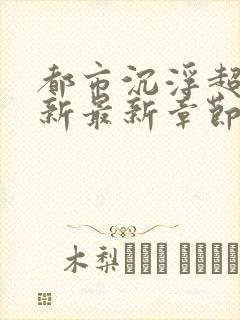 都市沉浮超
新最新章节
木梨